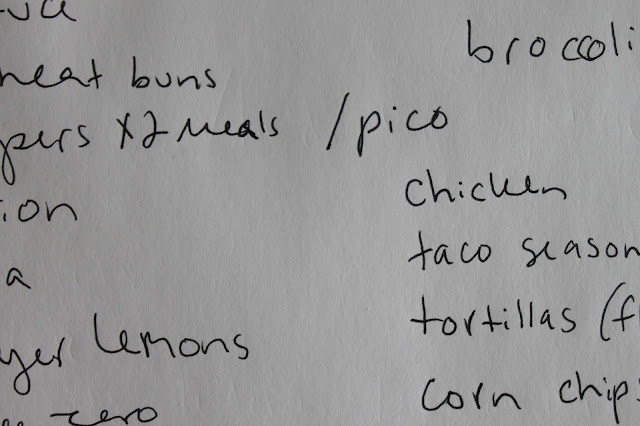 heat buns
pers x2 meals /pico
ion
a
yer lemons
zero
broccoli
chicken
taco season
tortillas (f
corn chips